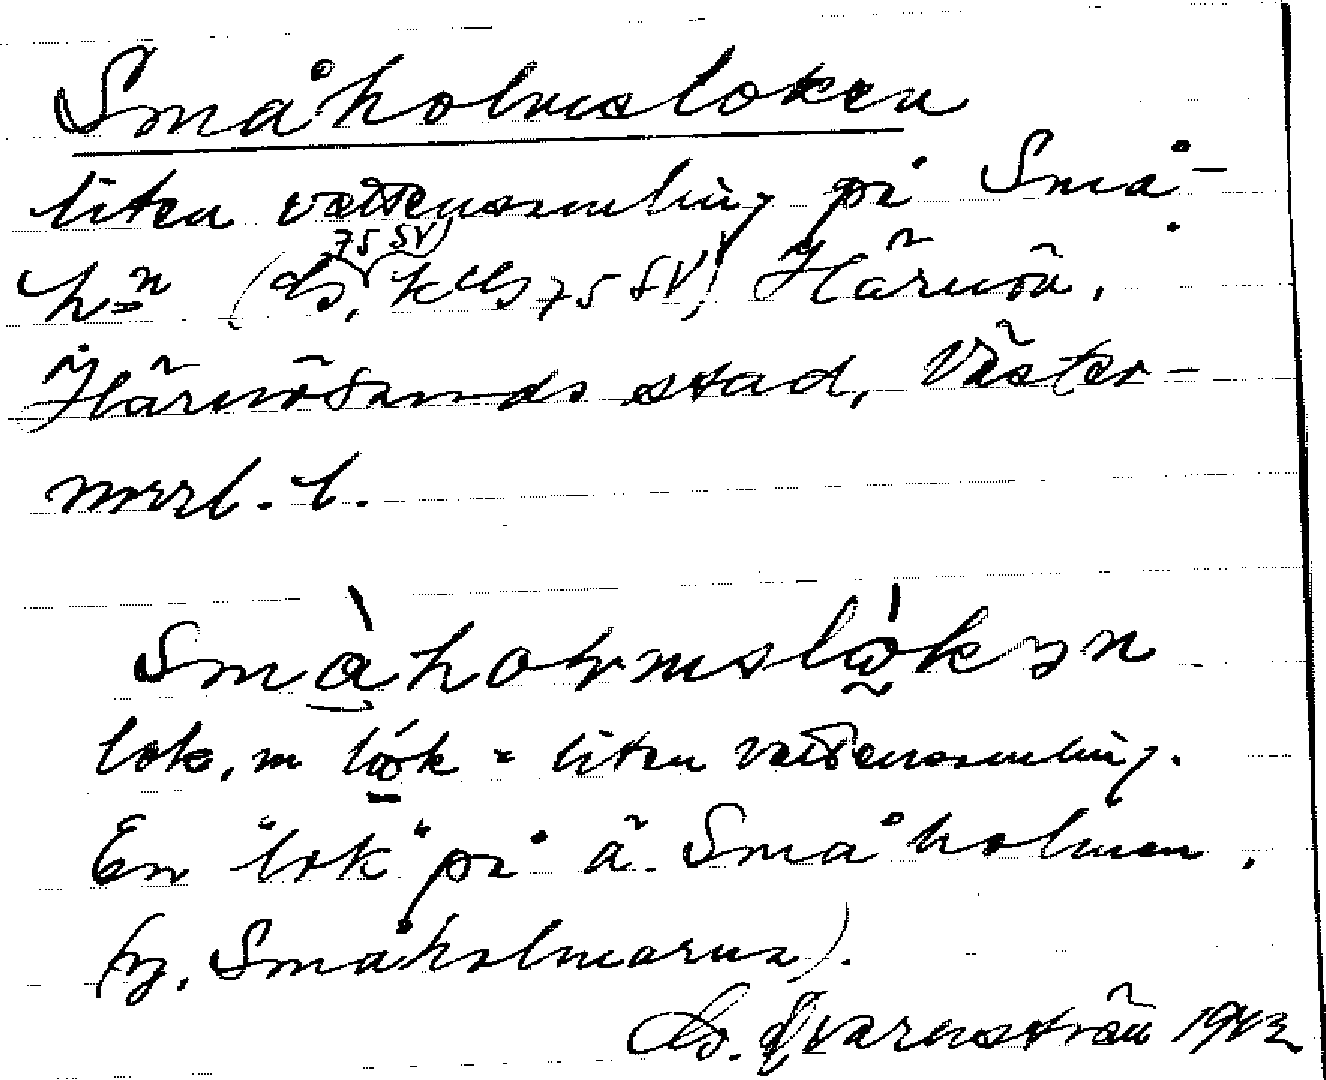 Småholmsloken
liten vattensamling på Små-
h=n (ds, 75 SV) kbls 75 SV) Härnön,
Härnösands stad, Väster-
norrl. l.
Småholmslokən
lok, m lok = liten vattensamling.
En "lok" på ä. Småholmen,
(tg. Småholmarna).
Qvarnström 1942